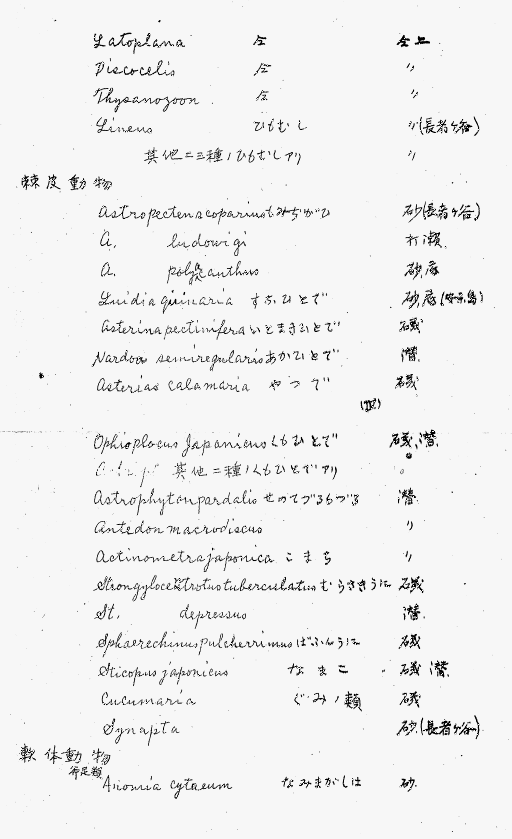 Latoplana 仝 仝上
Discocelis 仝 〃
Thysanozoon 仝 〃
Lineus ひもむし 〃(長者ヶ谷)
其他二三種ノひもむしアリ 〃
棘皮動物
Astropecten scoparius もみぢがひ 砂(長者ヶ谷)
A. ludowigi 打瀬
A. polyacanthus 砂底
Luidia quinaria すちひとで 砂底
Asterina pectinifera いとまきひとで 礒
Nardoa semiregularis あかひとで 潜
Asterias calamaria やつで 礒
Ophioplocus Japonicus くもひとで 礒、潜
其他二種ノくもひとでアリ
Astrophyton pardalis せのてづるもづる 潜
Antedon macrodiscus 〃
Actinometra japonica こまち 〃
Strongylocentrotus tuberculatus むらさきうに 礒
St. depressus 潜
Sphaerechinus pulcherrimus ばふんうに 礒
Sticopus japonicus なまこ 礒 潜
Cucumaria ぐみノ類 礒
Synapta 砂(長者ヶ谷)
軟体動物
斧足類
Anomia cytaeum なみまがしは 砂